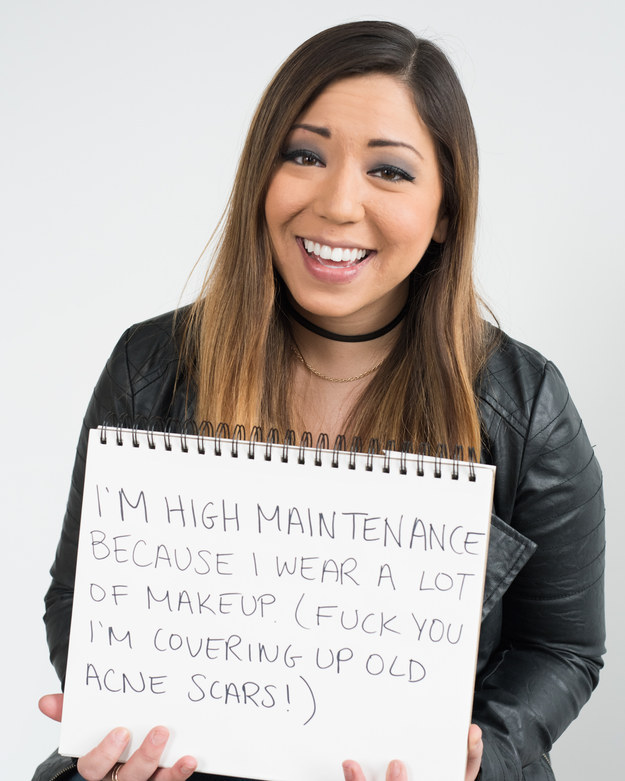 I'M HIGH MAINTENANCE
BECAUSE I WEAR A LOT
OF MAKEUP. (FUCK YOU
I'M COVERING UP OLD
ACNE SCARS!)